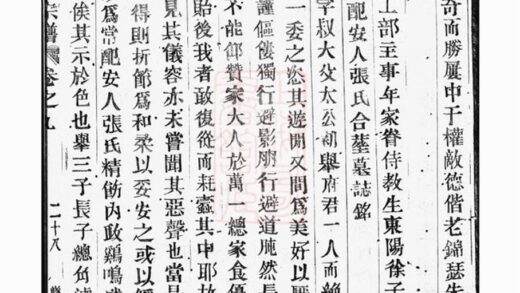 奇而勝展中于權敵德偕老錦瑟先
配安人張氏合塟墓誌銘
工部主事年家眷侍教生東陽徐子
字叔大攵太公初舉府君一人而絶
一委之忩其遊閒又間爲美好以
謹傴僂獨行避影臍行避道肔然長
不能卹贊家大人於萬一總家食優
貽後我者敢復從而耗蠧其中耶故
見其儀容亦未嘗聞其惡聲也當
得則折節爲和柔以妥安之或以
爲常配安人張氏精飭内政鷄鳴
俟其示於色也舉三子長子總角
宗譜 卷之九 二十八